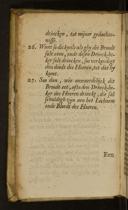 drincken, tot mijner gedachte-
nisse.
26. Want so dickwils als ghy dit Broodt
sult eten, ende desen Drinck-be-
ker sult drincken, so verkondiget
den doodt des Heeren, tot dat hy
komt.
27. So dan, wie onweerdelijck dit
Broodt eet, ofte den Drinck-be-
ker des Heeren drinckt, die sal
schuldigh zijn aen het Lichaem
ende Bloedt des Heeren.
Een